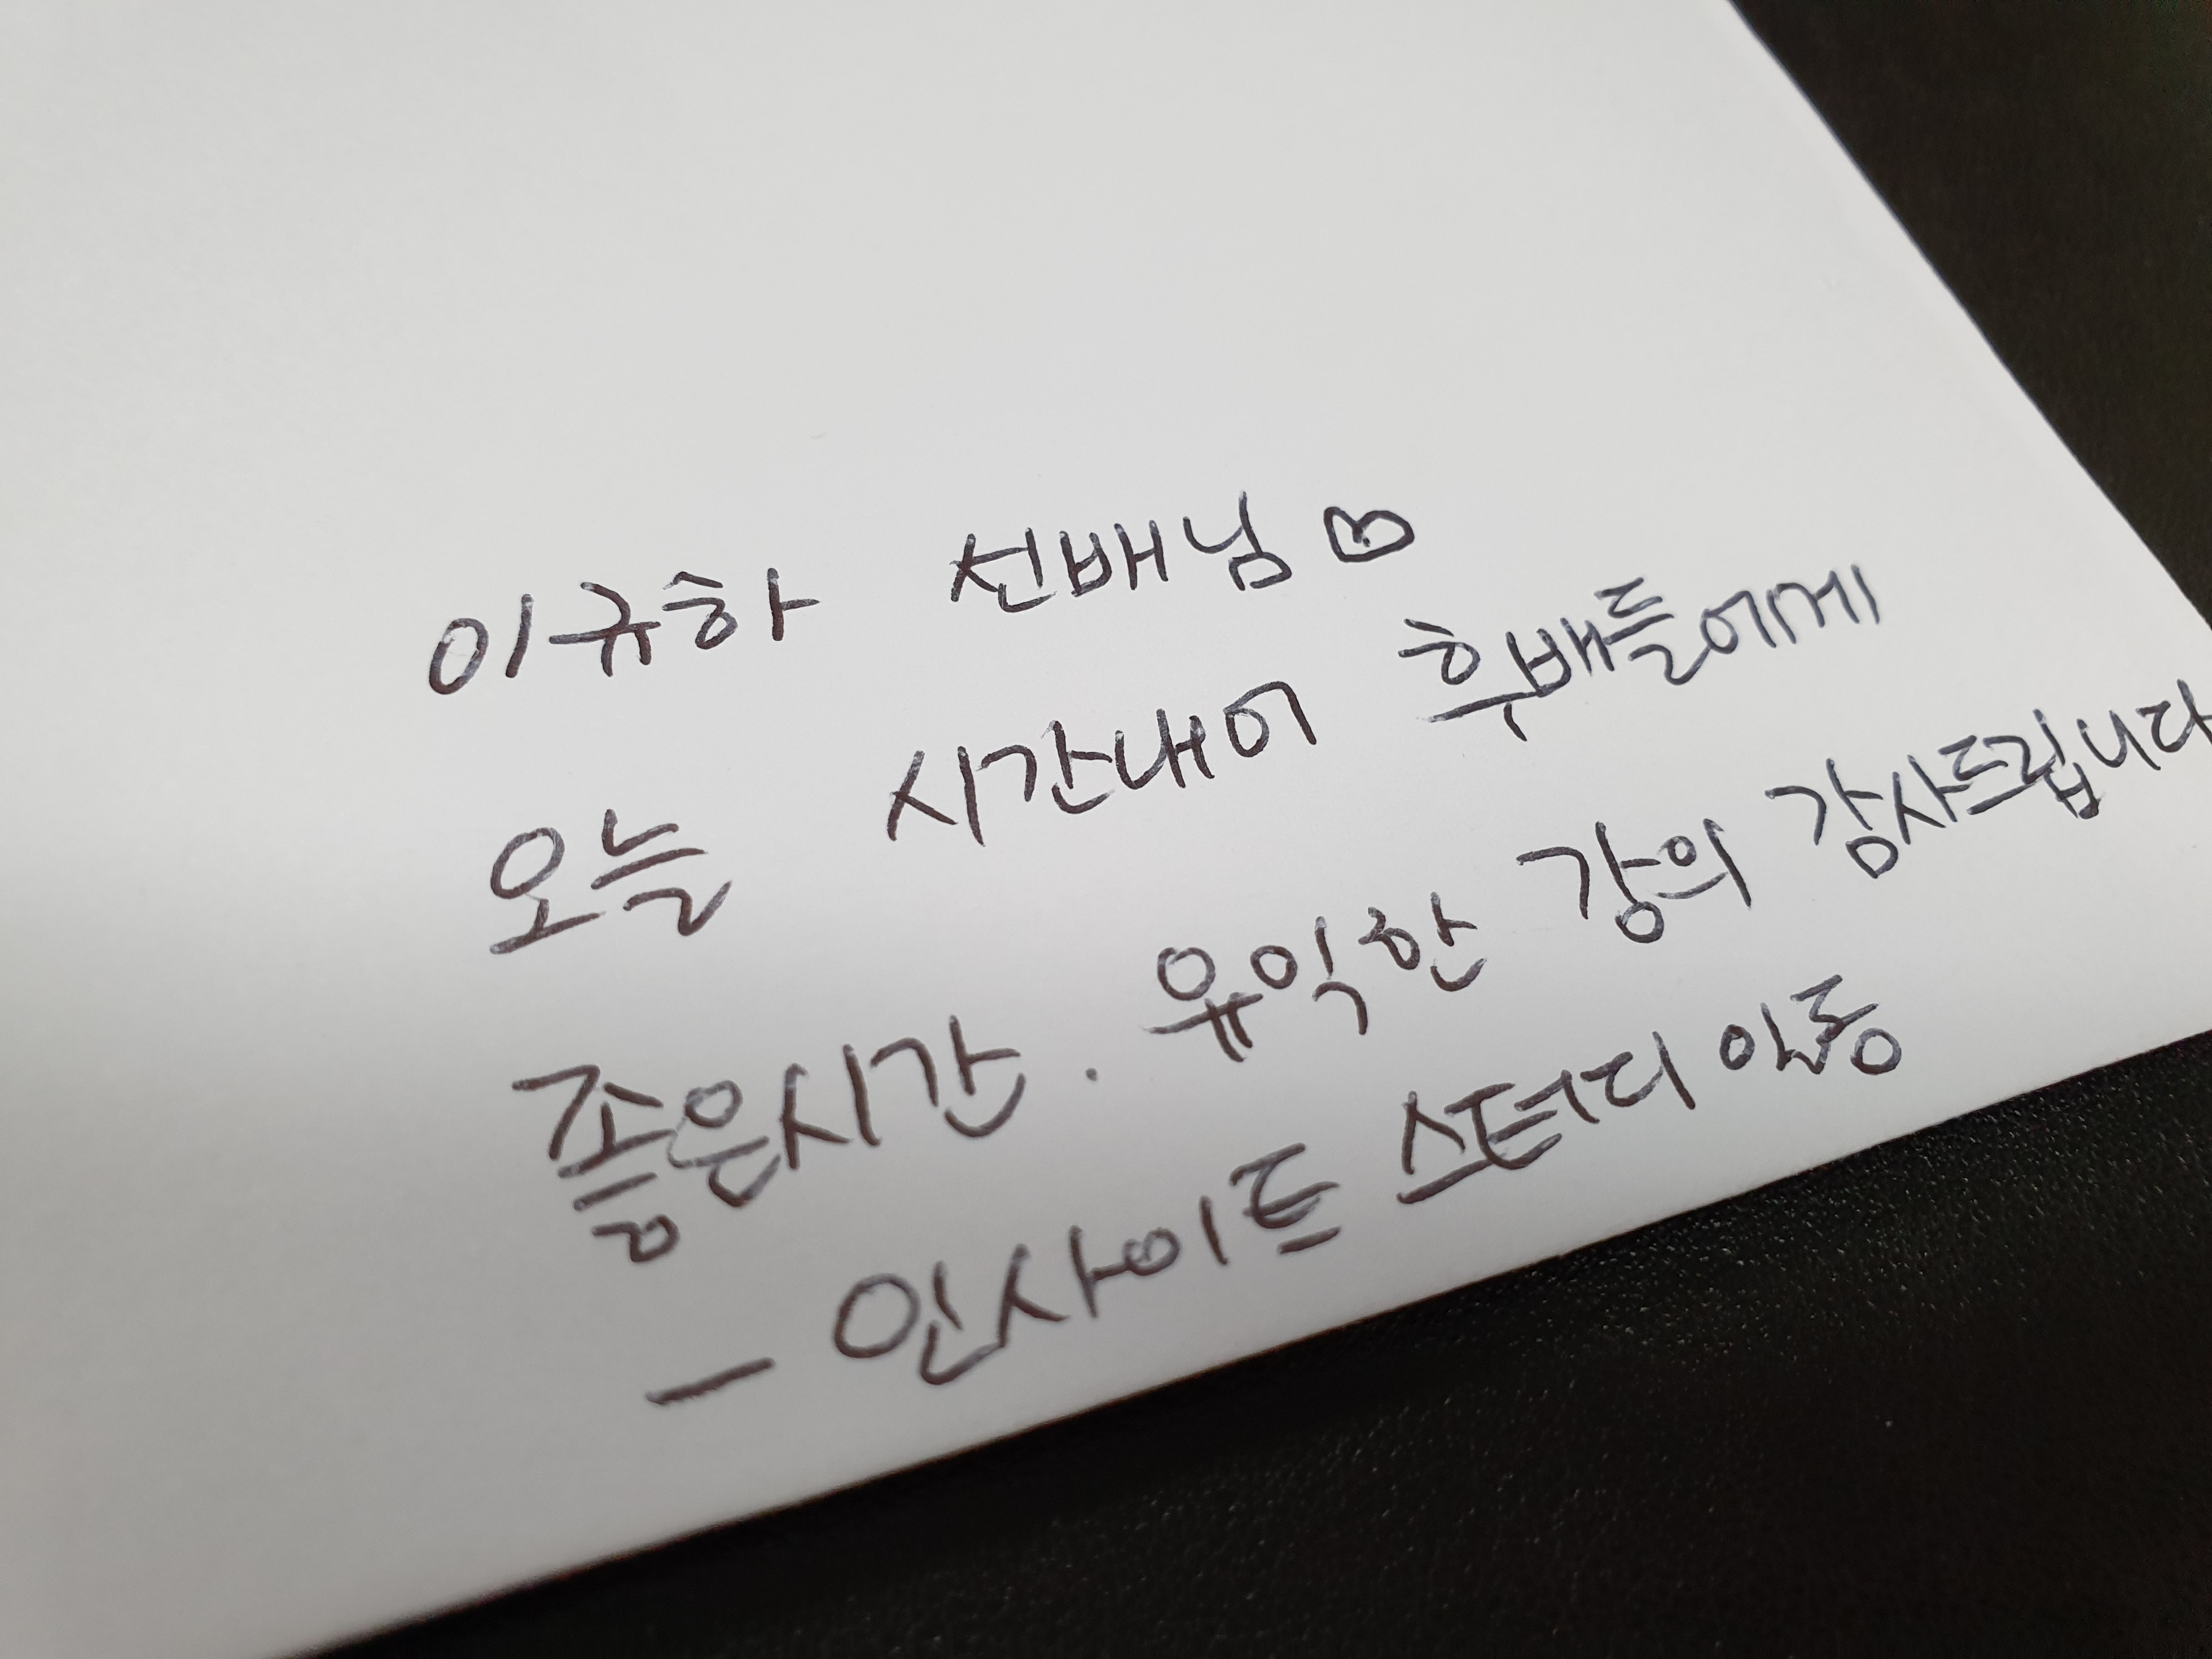 이규하 선배님♡
오늘 시간내어 후배들에게
좋은시간. 유익한 강의 감사드립니다
- 인사이트 스터디 일동